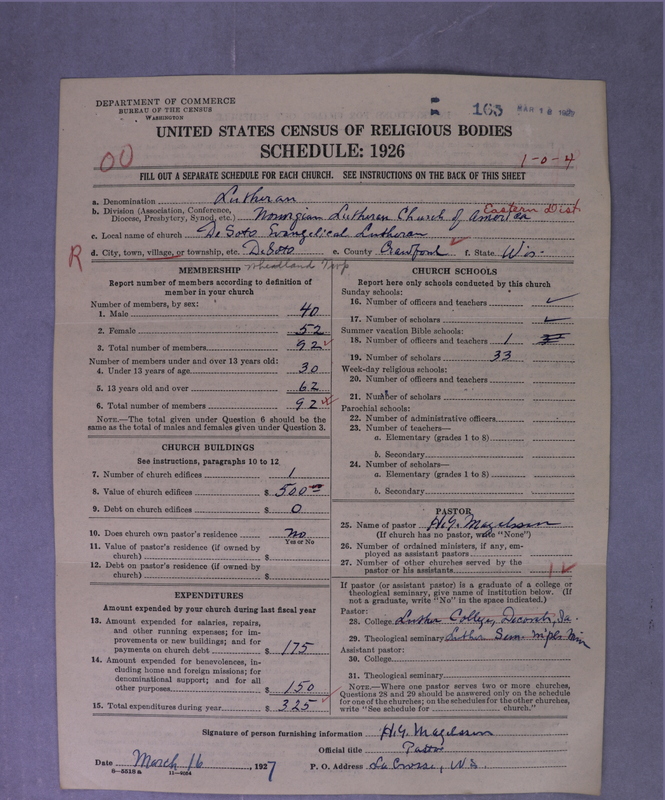 DEPARTMENT OF COMMERCE
BUREAU OF THE CENSUS
WASHINGTON
163 MAR 18 1927
UNITED STATES CENSUS OF RELIGIOUS BODIES
SCHEDULE: 1926
00
1-0-4
FILL OUT A SEPARATE SCHEDULE FOR EACH CHURCH. SEE INSTRUCTIONS ON THE BACK OF THIS SHEET
a. Denomination Lutheran
b. Division (Association, Conference, Diocese, Presbytery, Synod, etc.) Norwegian Lutheran Church of America Eastern Dist
c. Local name of church De Soto Evangelical Lutheran
R d. City, town, village, or township, etc. De Soto e. County Crawford f. State Wis.
Wheatland Twp
MEMBERSHIP
Report number of members according to definition of
member in your church
Number of members, by sex:
1. Male 40
2. Female 52
3. Total number of members 92
Number of members under and over 13 years old:
4. Under 13 years of age 30
5. 13 years old and over 62
6. Total number of members 92
NOTE.—The total given under Question 6 should be the
same as the total of males and females given under Question 3.
CHURCH BUILDINGS
See instructions, paragraphs 10 to 12
7. Number of church edifices 1
8. Value of church edifices $ 500
9. Debt on church edifices $ 0
10. Does church own pastor's residence No
Yes or No
11. Value of pastor's residence (if owned by
church) $
12. Debt on pastor's residence (if owned by
church) $
EXPENDITURES
Amount expended by your church during last fiscal year
13. Amount expended for salaries, repairs,
and other running expenses; for im-
provements or new buildings; and for
payments on church debt $ 175
14. Amount expended for benevolences, in-
cluding home and foreign missions; for
denominational support; and for all
other purposes $ 150
15. Total expenditures during year $ 325
CHURCH SCHOOLS
Report here only schools conducted by this church
Sunday schools:
16. Number of officers and teachers
17. Number of scholars
Summer vacation Bible schools:
18. Number of officers and teachers 1
19. Number of scholars 33
Week-day religious schools:
20. Number of officers and teachers
21. Number of scholars
Parochial schools:
22. Number of administrative officers
23. Number of teachers—
a. Elementary (grades 1 to 8)
b. Secondary
24. Number of scholars—
a. Elementary (grades 1 to 8)
b. Secondary
PASTOR
25. Name of pastor H. G. Magelssen
(If church has no pastor, write "None")
26. Number of ordained ministers, if any, em-
ployed as assistant pastors
27. Number of other churches served by the
pastor or his assistants 1
If pastor (or assistant pastor) is a graduate of a college or
theological seminary, give name of institution below. (If
not a graduate, write "No" in the space indicated.)
Pastor:
28. College Luther College, Decorah, Ia.
29. Theological seminary Luther Sem. Mpls Min
Assistant pastor:
30. College
31. Theological seminary
NOTE.—Where one pastor serves two or more churches,
Questions 28 and 29 should be answered only on the schedule
for one of the churches; on the schedules for the other churches,
write "See schedule for church."
Signature of person furnishing information H. G. Magelssen
Official title Pastor
Date March 16, 1927 P. O. Address La Crosse, Wis.
8—5518 a 11—4064